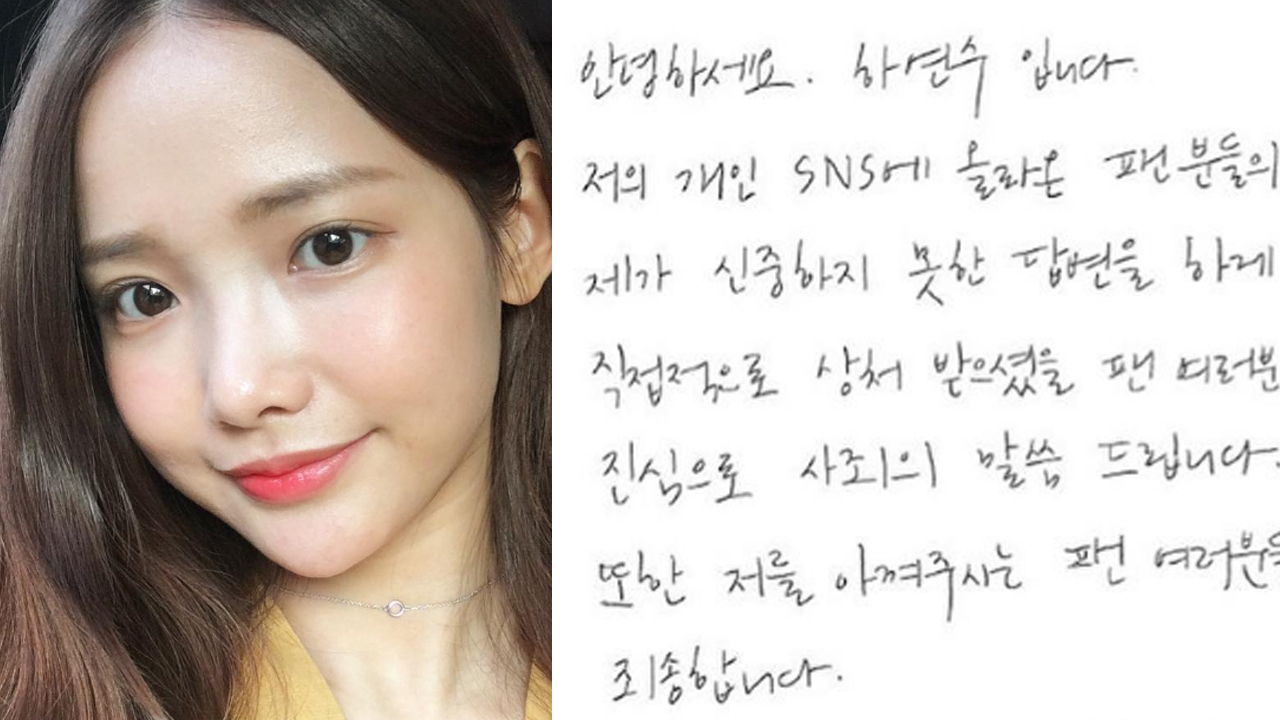 안녕하세요. 하연수 입니다.
저의 개인 SNS에 올라온 팬분들의
제가 신중하지 못한 답변을 하게
직접적으로 상처 받으셨을 팬 여러분
진심으로 사죄의 말씀 드립니다.
또한 저를 아껴주시는 팬 여러분들
죄송합니다.